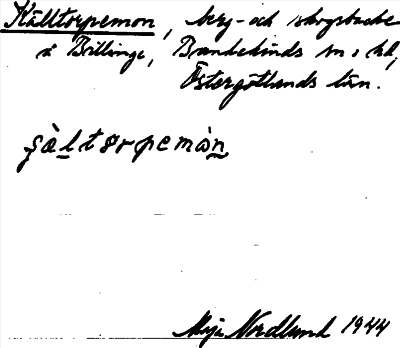 Källtorpemon, berg- och skogsbacke
å Brillinge, Brunnekinds sn o hd,
Östergötlands län.
çàltorpemòn
Maja Nordlund 1944